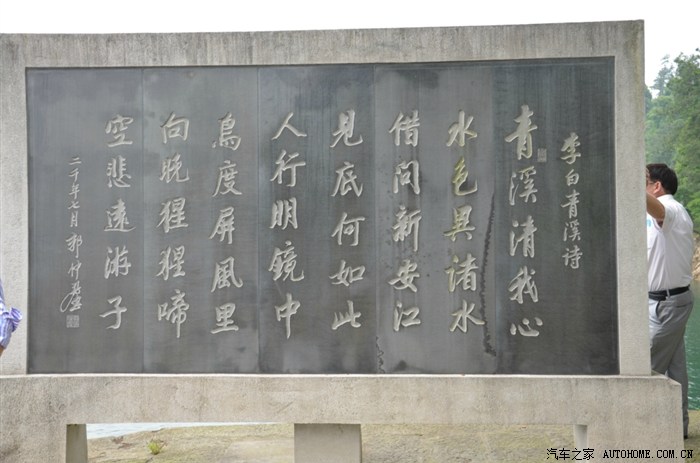 李白青溪诗
青溪清我心
水色異諸水
借问新安江
見底何如此
人行明鏡中
鳥度屏風里
向晚猩猩啼
空悲遠游子
二千年七月
汽车之家 AUTOHOME.COM.CN